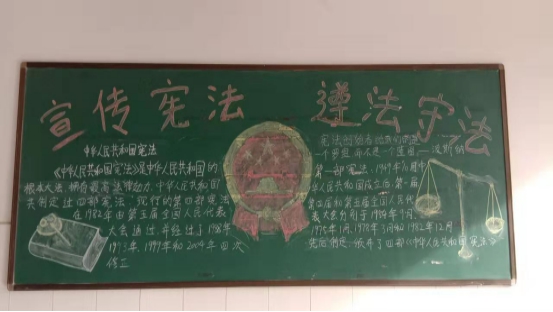 宣传宪法 遵法守法
中华人民共和国宪法
《中华人民共和国宪法》是中华人民共和国的
根本大法,拥有最高法律效力。中华人民共和国
共制定过四部宪法,现行的第四部宪法
在1982年由第五届全国人民代表
大会通过,并经过了1988年
1993年、1999年和2004年四次
修正
宪法的
一个
第一部宪法,1949年
华人民共和国成立后,第一届
第四届和第五届全国人民代
表大会分别于1954年9月、
1975年1月、1978年3月和1982年12月
先后制定、颁布了四部《中华人民共和国宪法》